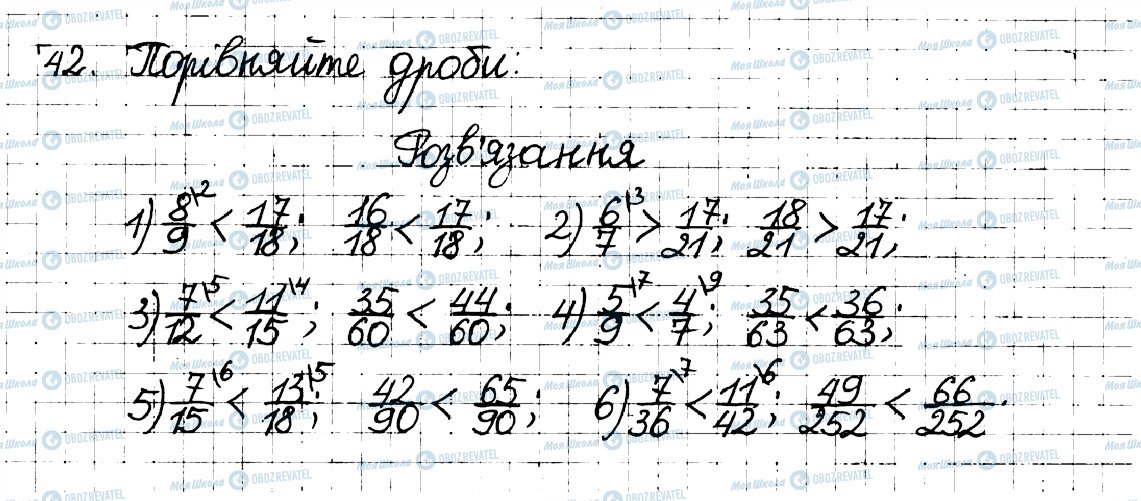 42. Порівняйте дроби:
Розв'язання
1) 8/9 \2 < 17/18; 16/18 < 17/18; 2) 6/7 \3 > 17/21; 18/21 > 17/21;
3) 7/12 \5 < 11/15 \4; 35/60 < 44/60; 4) 5/9 \7 < 4/7 \9; 35/63 < 36/63;
5) 7/15 \6 < 13/18 \5; 42/90 < 65/90; 6) 7/36 \7 < 11/42 \6; 49/252 < 66/252.